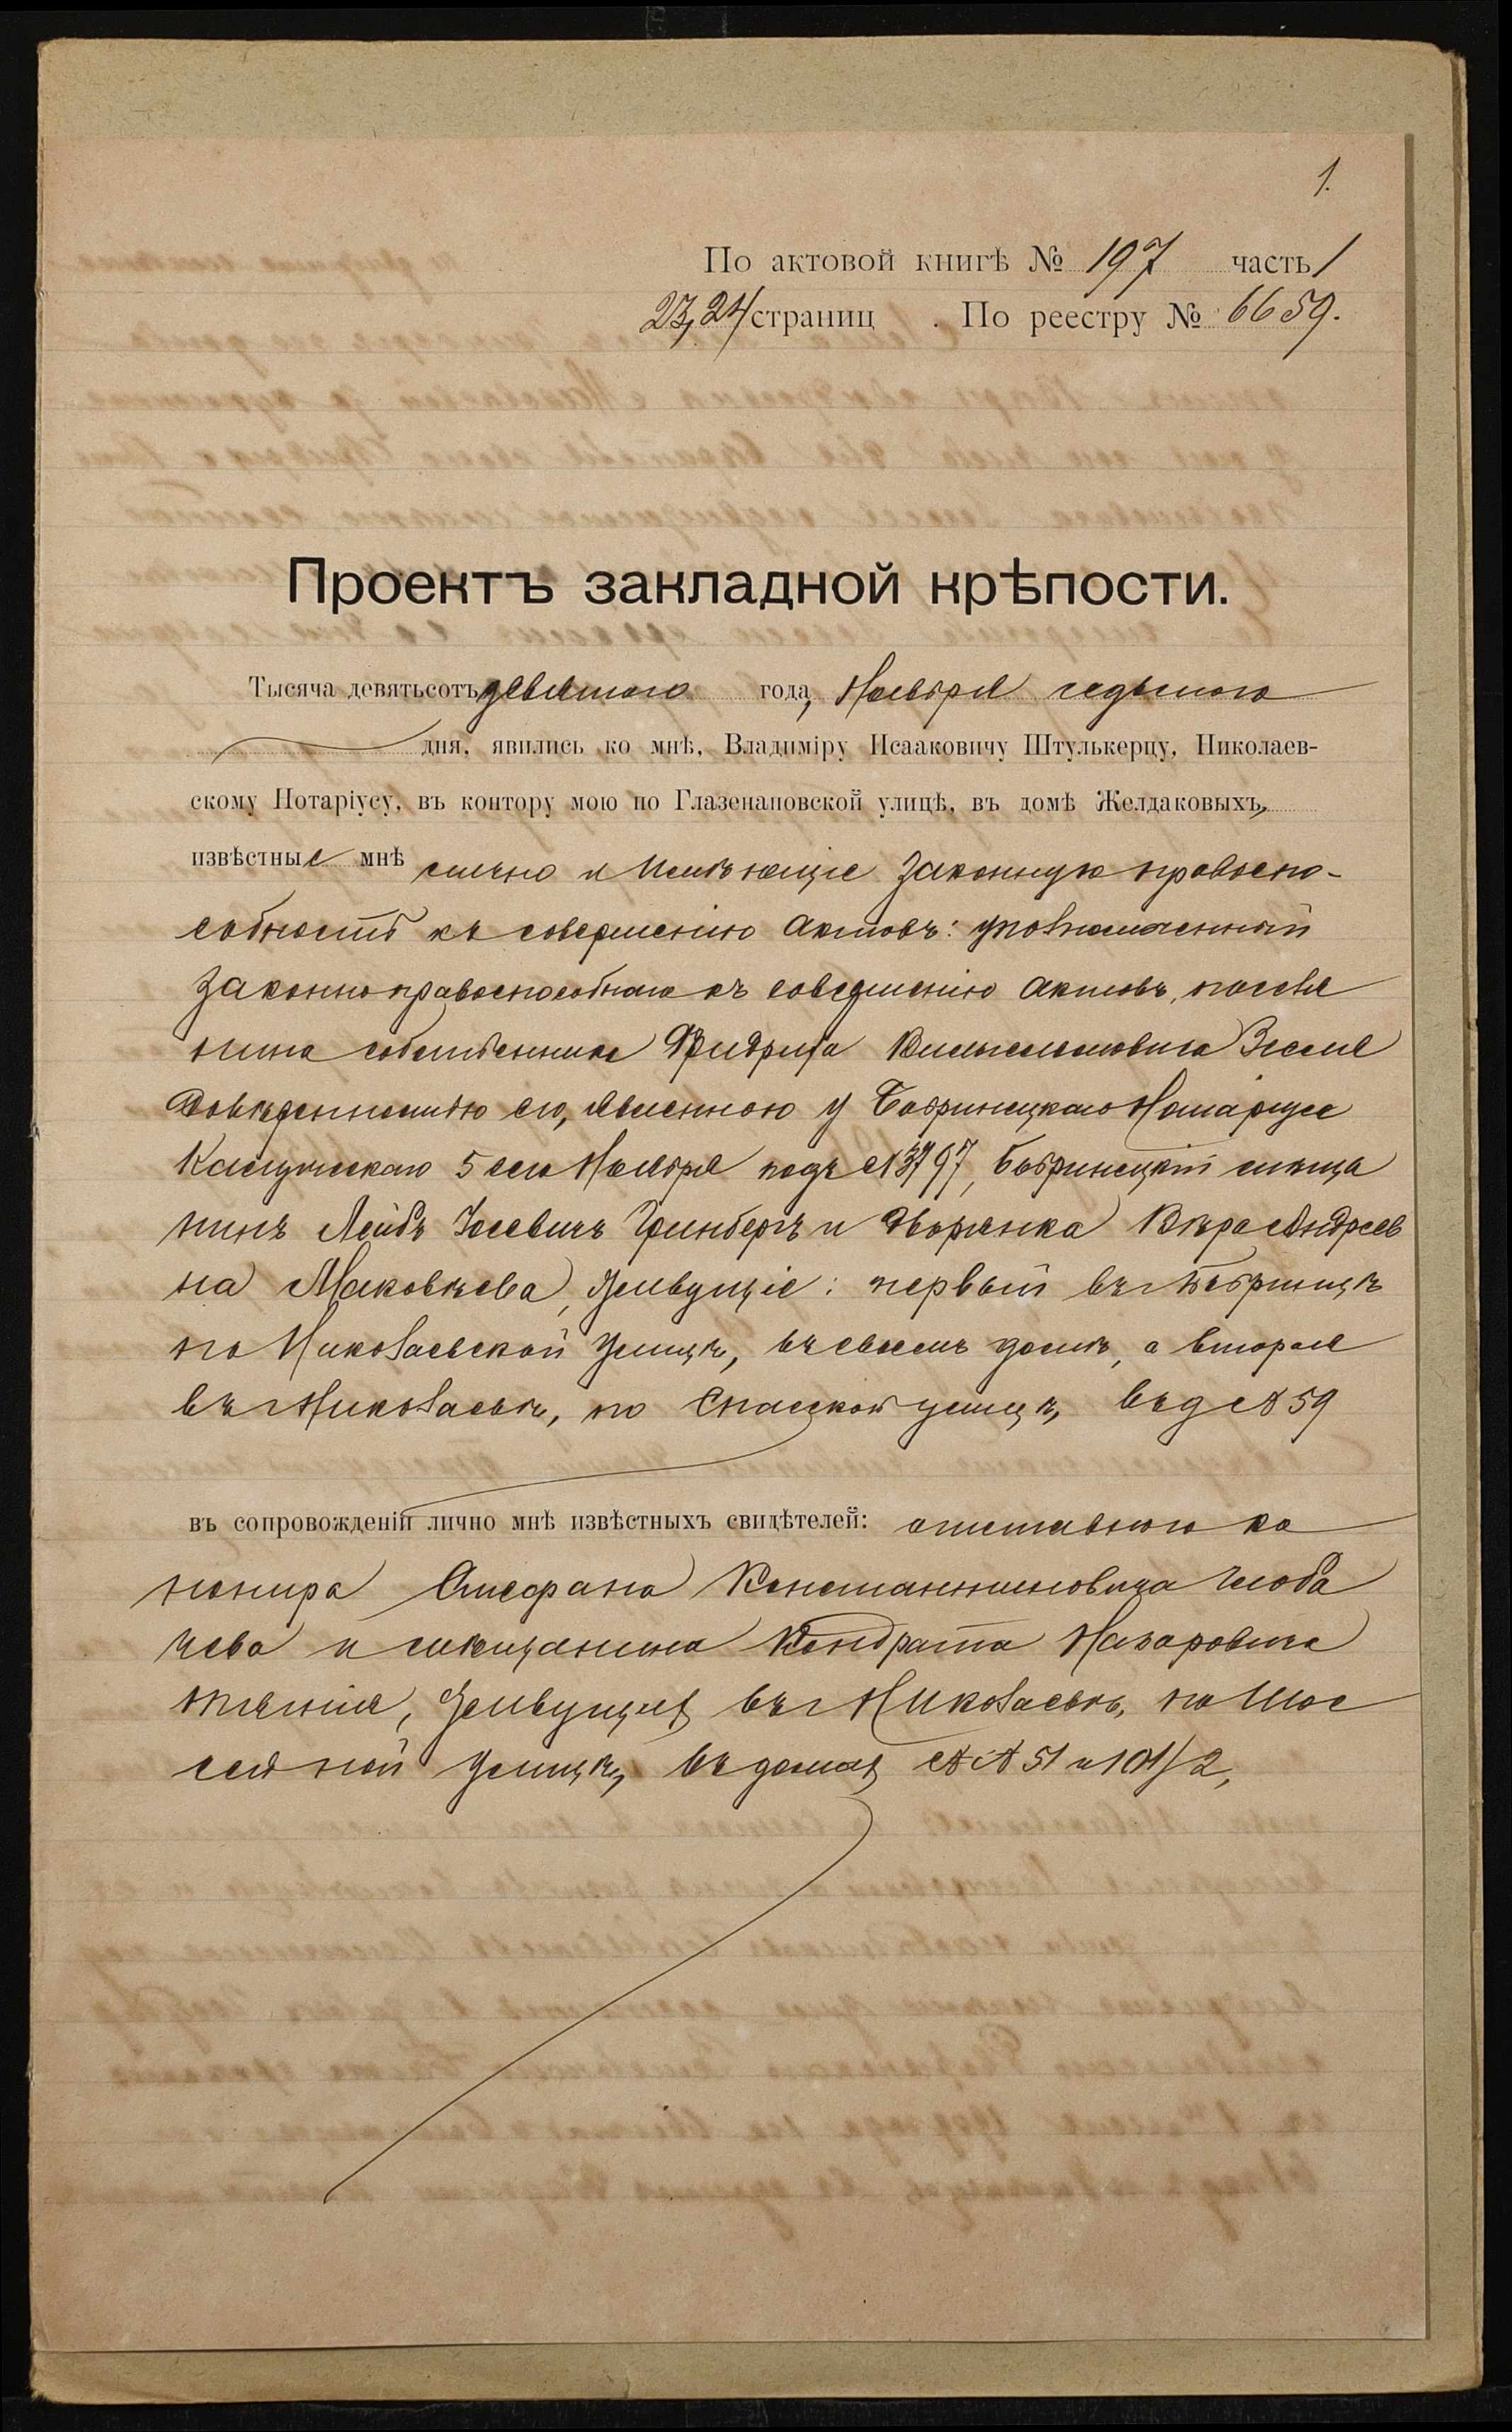 1.
По актовой книгѣ № 197 часть 1
23, 24 страниц . По реестру № 6659.
Проектъ закладной крѣпости.
Тысяча девятьсотъ девятого года, Ноября седьмого
дня, явились ко мнѣ, Владиміру Исааковичу Штулькерцу, Николаев-
скому Нотаріусу, въ контору мою по Глазенаповской улицѣ, въ домѣ Желдаковыхъ,
извѣстные мнѣ лично и имѣющіе законную правоспо-
собность къ совершенію актовъ: уполномоченный
законно правоспособнаго къ совершенію актовъ, поселя
нина собственника Фридриха Вильгельмовича
довѣренностью его, явленною у Бобринецкаго Нотаріуса
5 сего Ноября подъ № 3797, Бобринецкій мѣща
нинъ Лейбъ Іосевичъ Гринбергъ и дворянка Вѣра Андреев
на Маковѣева, живущіе: первый въ г Бобринцѣ
по Николаевской улицѣ, въ своемъ домѣ, а вторая
въ г Николаевѣ, по Спасской улицѣ, въ д № 59
въ сопровожденіи лично мнѣ извѣстныхъ свидѣтелей: отставного ка
нонира Стефана Константиновича
и мѣщанина Кондрата Назаровича
живущихъ въ г Николаевѣ, по Шос
сейной улицѣ, въ домахъ №№ 51 и 101/2,